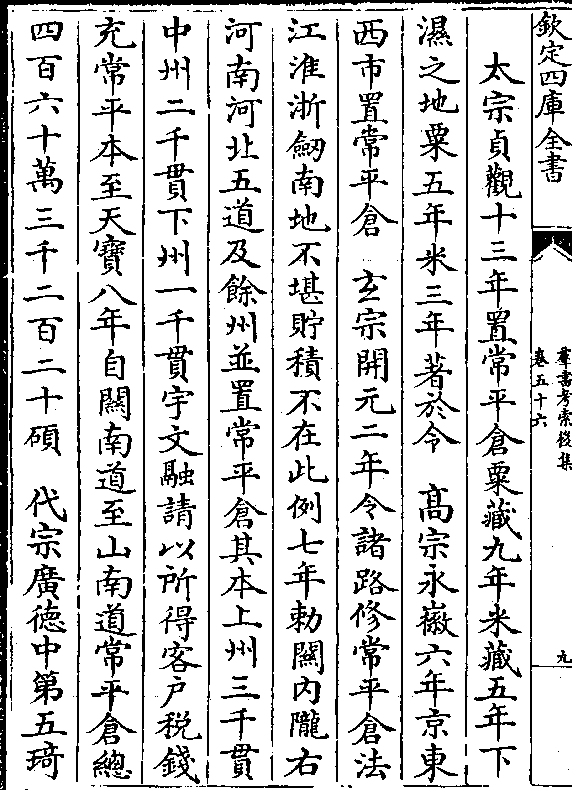 欽定四庫全書
羣書考索後集
卷五十六
九
太宗貞觀十三年置常平倉粟藏九年米藏五年下
濕之地粟五年米三年著於令 髙宗永徽六年京東
西市置常平倉 玄宗開元二年令諸路修常平倉法
江淮浙劒南地不堪貯積不在此例七年勅闗内隴右
河南河北五道及餘州並置常平倉其本上州三千貫
中州二千貫下州一千貫宇文融請以所得客户税錢
充常平本至天寳八年自闗南道至山南道常平倉總
四百六十萬三千二百二十碩 代宗廣徳中第五琦